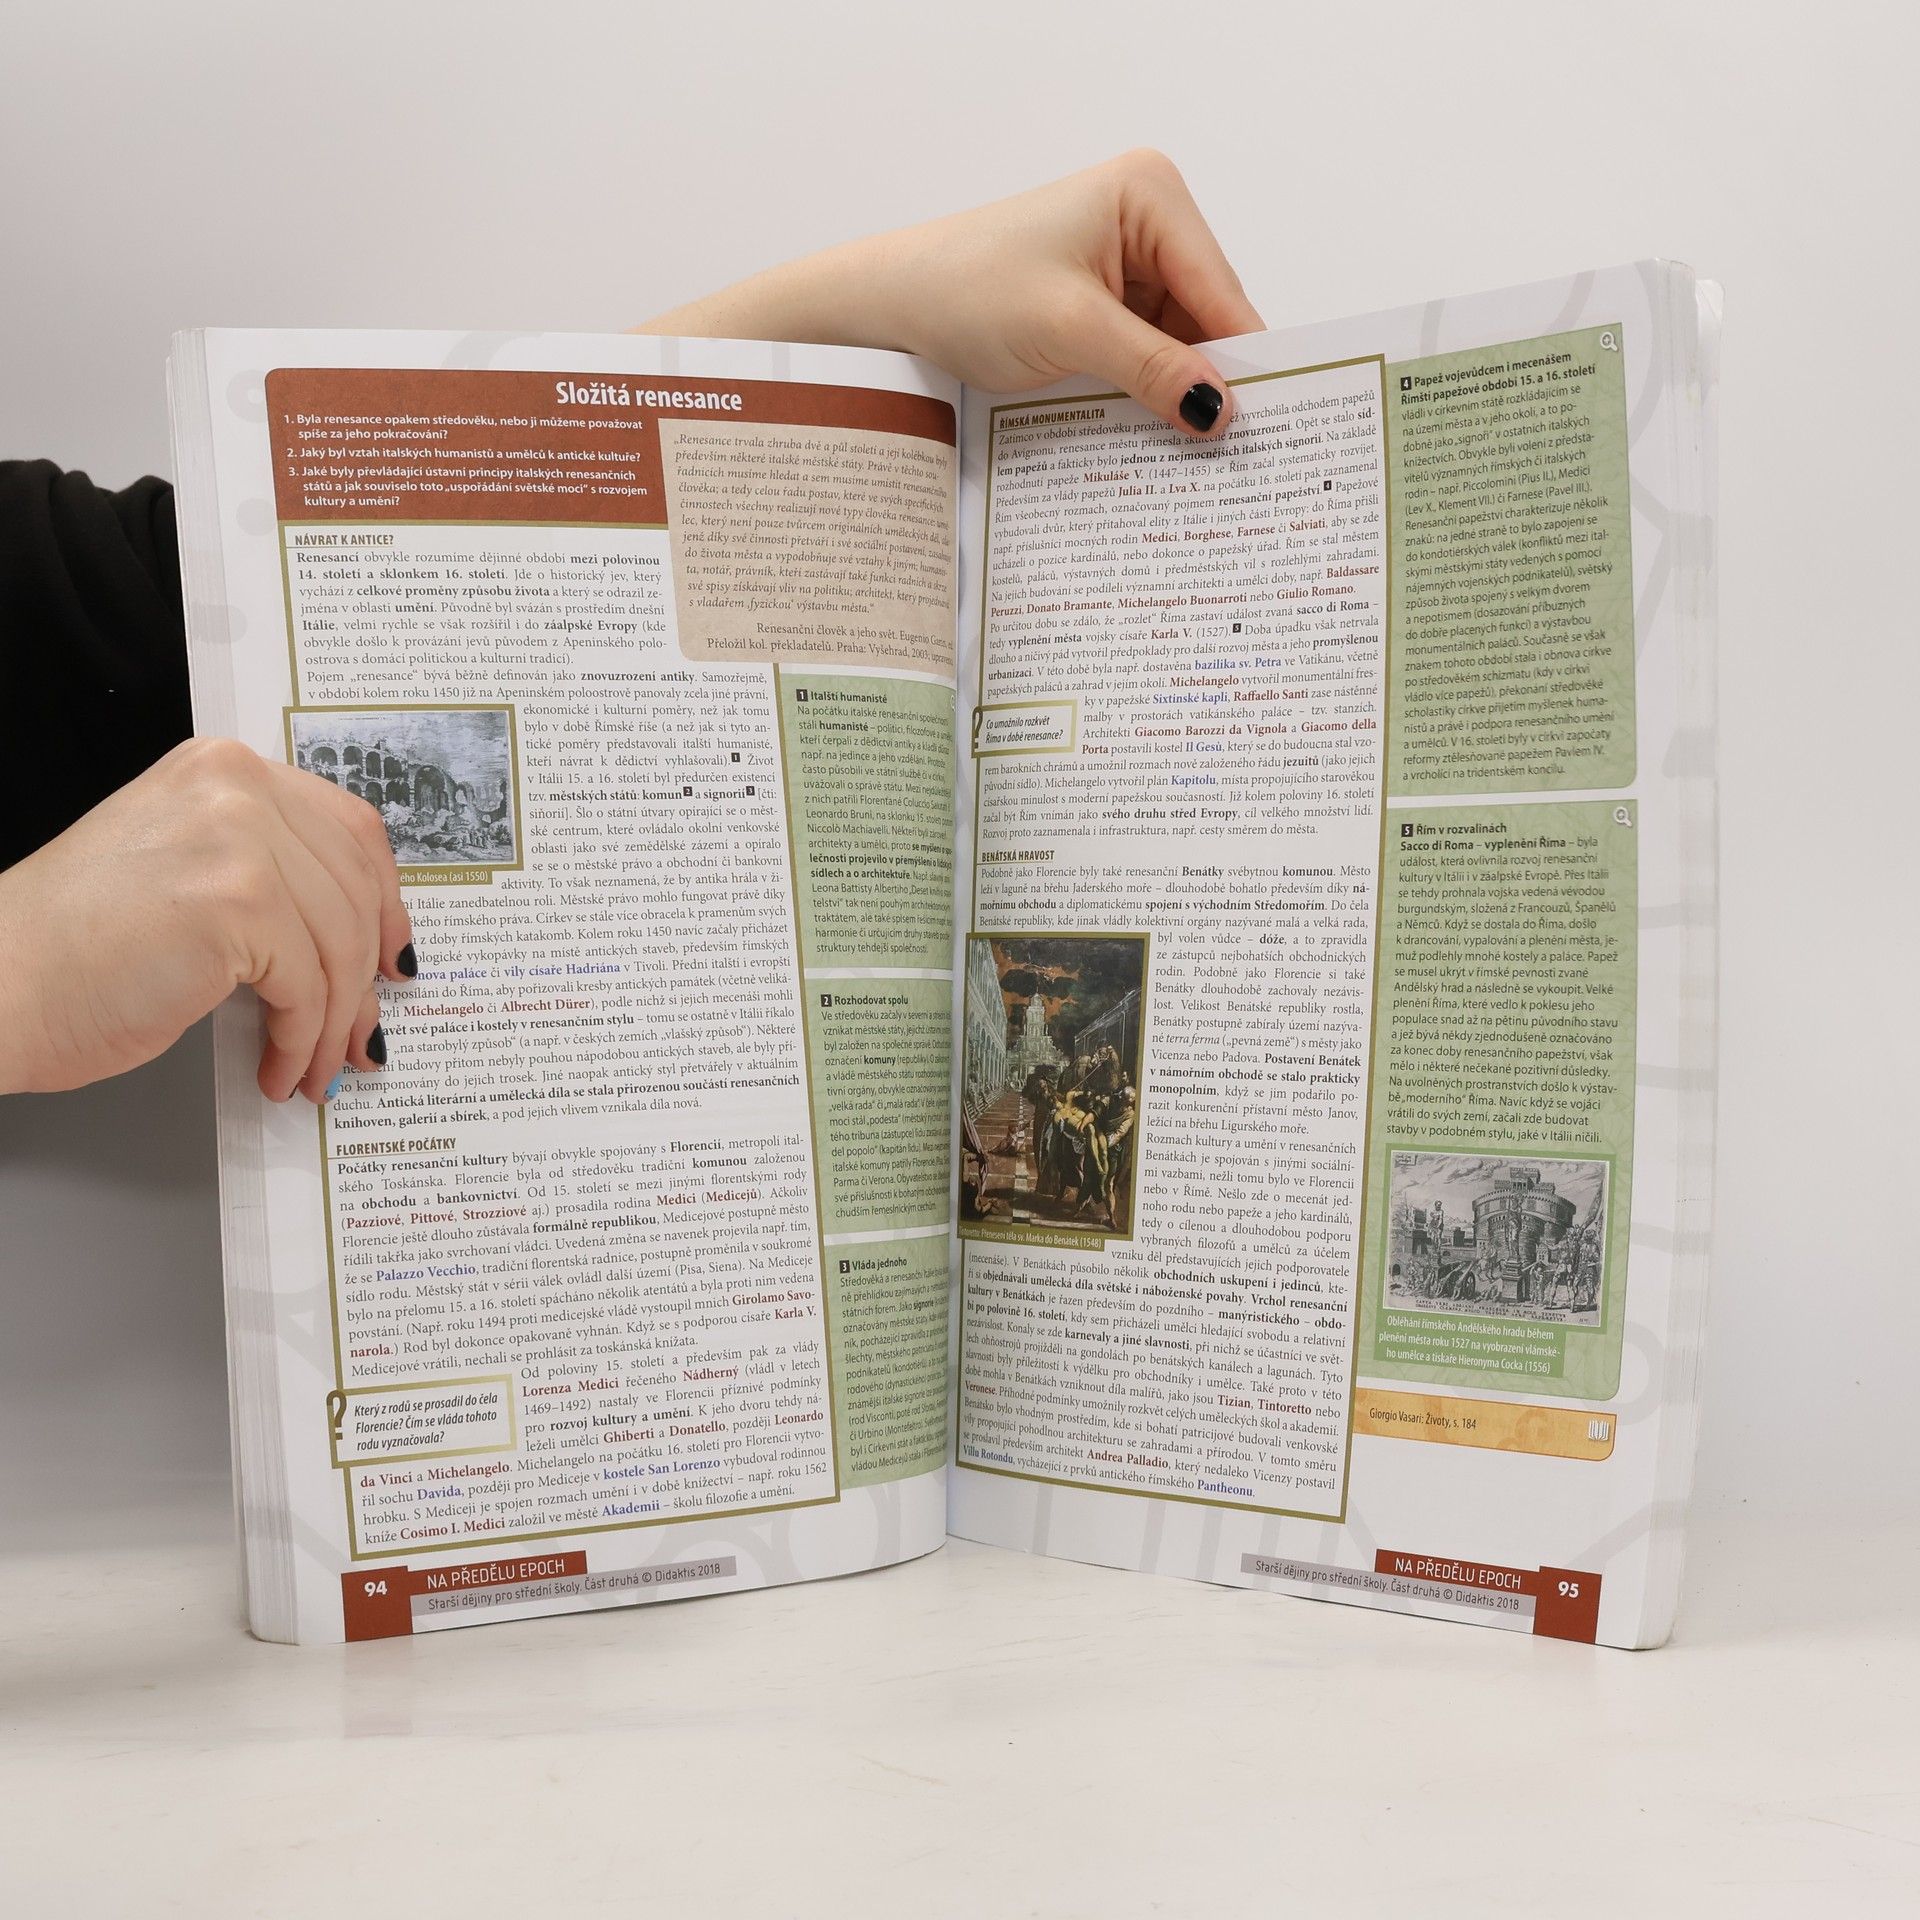 Složitá renesance
1. Byla renesance opakem středověku, nebo ji můžeme považovat
spíše za jeho pokračování?
2. Jaký byl vztah italských humanistů a umělců k antické kultuře?
3. Jaké byly převládající ústavní principy italských renesančních
států a jak souviselo toto „uspořádání světské moci“ s rozvojem
kultury a umění?
„Renesance trvala zhruba dvě a půl století a její kolébkou byly
především některé italské městské státy. Právě v těchto sou-
řadnicích musíme hledat a sem musíme umístit renesančního
člověka; a tedy celou řadu postav, které ve svých specifických
činnostech všechny realizují nové typy člověka renesance: umě-
lec, který není pouze tvůrcem originálních uměleckých děl, ale
jenž díky své činnosti přetváří i své sociální postavení, zasahuje
do života města a vypodobňuje své vztahy k jiným; humanis-
ta, notář, právník, kteří zastávají také funkci radních a skrze
své spisy získávají vliv na politiku; architekt, který projednává
s vladařem ‚fyzickou‘ výstavbu města.“
Renesanční člověk a jeho svět. Eugenio Garin, ed.
Přeložil kol. překladatelů. Praha: Vyšehrad, 2003; upraveno
NÁVRAT K ANTICE?
Renesancí obvykle rozumíme dějinné období mezi polovinou
14. století a sklonkem 16. století. Jde o historický jev, který
vychází z celkové proměny způsobu života a který se odrazil ze-
jména v oblasti umění. Původně byl svázán s prostředím dnešní
Itálie, velmi rychle se však rozšířil i do záalpské Evropy (kde
obvykle došlo k provázání jevů původem z Apeninského polo-
ostrova s domácí politickou a kulturní tradicí).
Pojem „renesance“ bývá běžně definován jako znovuzrození antiky. Samozřejmě,
v období kolem roku 1450 již na Apeninském poloostrově panovaly zcela jiné právní,
ekonomické i kulturní poměry, než jak tomu
bylo v době Římské říše (a než jak si tyto an-
tické poměry představovali italští humanisté,
kteří návrat k dědictví vyhlašovali).1 Život
v Itálii 15. a 16. století byl předurčen existencí
tzv. městských států: komun2 a signorií3 [čti:
siňorií]. Šlo o státní útvary opírající se o měst-
ské centrum, které ovládalo okolní venkovské
oblasti jako své zemědělské zázemí a opíralo
se se o městské právo a obchodní či bankovní
aktivity. To však neznamená, že by antika hrála v ži-
ní Itálie zanedbatelnou roli. Městské právo mohlo fungovat právě díky
kého římského práva. Církev se stále více obracela k pramenům svých
z doby římských katakomb. Kolem roku 1450 navíc začaly přicházet
ologické vykopávky na místě antických staveb, především římských
nova paláce či vily císaře Hadriána v Tivoli. Přední italští i evropští
yli posíláni do Říma, aby pořizovali kresby antických památek (včetně veliká-
byli Michelangelo či Albrecht Dürer), podle nichž si jejich mecenáši mohli
avět své paláce i kostely v renesančním stylu – tomu se ostatně v Itálii říkalo
„na starobylý způsob“ (a např. v českých zemích „vlašský způsob“). Některé
ní budovy přitom nebyly pouhou nápodobou antických staveb, ale byly pří-
mo komponovány do jejich trosek. Jiné naopak antický styl přetvářely v aktuálním
duchu. Antická literární a umělecká díla se stala přirozenou součástí renesančních
knihoven, galerií a sbírek, a pod jejich vlivem vznikala díla nová.
ého Kolosea (asi 1550)
FLORENTSKÉ POČÁTKY
Počátky renesanční kultury bývají obvykle spojovány s Florencií, metropolí ital-
ského Toskánska. Florencie byla od středověku tradiční komunou založenou
na obchodu a bankovnictví. Od 15. století se mezi jinými florentskými rody
(Pazziové, Pittové, Strozziové aj.) prosadila rodina Medici (Medicejů). Ačkoliv
Florencie ještě dlouho zůstávala formálně republikou, Medicejové postupně město
řídili takřka jako svrchovaní vládci. Uvedená změna se navenek projevila např. tím,
že se Palazzo Vecchio, tradiční florentská radnice, postupně proměnila v soukromé
sídlo rodu. Městský stát v sérii válek ovládl další území (Pisa, Siena). Na Mediceje
bylo na přelomu 15. a 16. století spácháno několik atentátů a byla proti nim vedena
povstání. (Např. roku 1494 proti medicejské vládě vystoupil mnich Girolamo Savo-
narola.) Rod byl dokonce opakovaně vyhnán. Když se s podporou císaře Karla V.
Medicejové vrátili, nechali se prohlásit za toskánská knížata.
Od poloviny 15. století a především pak za vlády
Lorenza Medici řečeného Nádherný (vládl v letech
1469–1492) nastaly ve Florencii příznivé podmínky
pro rozvoj kultury a umění. K jeho dvoru tehdy ná-
leželi umělci Ghiberti a Donatello, později Leonardo
da Vinci a Michelangelo. Michelangelo na počátku 16. století pro Florencii vytvo-
řil sochu Davida, později pro Mediceje v kostele San Lorenzo vybudoval rodinnou
hrobku. S Mediceji je spojen rozmach umění i v době knížectví – např. roku 1562
kníže Cosimo I. Medici založil ve městě Akademii – školu filozofie a umění.
? Který z rodů se prosadil do čela
Florencie? Čím se vláda tohoto
rodu vyznačovala?
1 Italští humanisté
Na počátku italské renesanční společnosti
stáli humanisté – politici, filozofové a umělci,
kteří čerpali z dědictví antiky a kladli důraz
např. na jedince a jeho vzdělání. Protože
často působili ve státní službě či v církvi,
uvažovali o správě státu. Mezi nejdůležitější
z nich patřili Florenťané Coluccio Salutati
Leonardo Bruni, na sklonku 15. století potom
Niccolò Machiavelli. Někteří byli zároveň
architekty a umělci, proto se myšlení o spo-
lečnosti projevilo v přemýšlení o lidských
sídlech a o architektuře. Např. slavný spis
Leona Battisty Albertiho „Deset knih o
telství“ tak není pouhým architektonickým
traktátem, ale také spisem řešícím např.
harmonie či určujícím druhy staveb podle
struktury tehdejší společnosti.
2 Rozhodovat spolu
Ve středověku začaly v severní a střední
vznikat městské státy, jejichž ústavní
byl založen na společné správě. Odtud
označení komuny (republiky). O zákonech
a vládě městského státu rozhodovaly
tivní orgány, obvykle označovány jako
„velká rada“ či „malá rada“. V čele výkonné
moci stál „podesta“ (městský rychtář)
tého tribuna (zástupce) lidu zastával
del popolo“ (kapitán lidu). Mezi
italské komuny patřily Florencie, Pisa,
Parma či Verona. Obyvatelstvo se
své příslušnosti k bohatým
chudším řemeslnickým cechům.
3 Vláda jednoho
Středověká a renesanční Itálie byla
ně přehlídkou zajímavých a
státních forem. Jako signorie
označovány městské státy, kde
ník, pocházející zpravidla z
šlechty, městského patriciátu
podnikatelů (kondotiérů)
rodového (dynastického)
známější italské signorie
(rod Visconti, poté rod Sforza),
či Urbino (Montefeltro).
byl i Církevní stát a
vládou Medicejů stala i Florencie
94
NA PŘEDĚLU EPOCH
Starší dějiny pro střední školy. Část druhá © Didaktis 2018
ŘÍMSKÁ MONUMENTALITA
Zatímco v období středověku prožíva ež vyvrcholila odchodem papežů
do Avignonu, renesance městu přinesla skutečné znovuzrození. Opět se stalo síd-
lem papežů a fakticky bylo jednou z nejmocnějších italských signorií. Na základě
rozhodnutí papeže Mikuláše V. (1447–1455) se Řím začal systematicky rozvíjet.
Především za vlády papežů Julia II. a Lva X. na počátku 16. století pak zaznamenal
Řím všeobecný rozmach, označovaný pojmem renesanční papežství.4 Papežové
vybudovali dvůr, který přitahoval elity z Itálie i jiných částí Evropy: do Říma přišli
např. příslušníci mocných rodin Medici, Borghese, Farnese či Salviati, aby se zde
ucházeli o pozice kardinálů, nebo dokonce o papežský úřad. Řím se stal městem
kostelů, paláců, výstavných domů i předměstských vil s rozlehlými zahradami.
Na jejich budování se podíleli významní architekti a umělci doby, např. Baldassare
Peruzzi, Donato Bramante, Michelangelo Buonarroti nebo Giulio Romano.
Po určitou dobu se zdálo, že „rozlet“ Říma zastaví událost zvaná sacco di Roma –
tedy vyplenění města vojsky císaře Karla V. (1527).5 Doba úpadku však netrvala
dlouho a ničivý pád vytvořil předpoklady pro další rozvoj města a jeho promyšlenou
urbanizaci. V této době byla např. dostavěna bazilika sv. Petra ve Vatikánu, včetně
papežských paláců a zahrad v jejím okolí. Michelangelo vytvořil monumentální fres-
ky v papežské Sixtinské kapli, Raffaello Santi zase nástěnné
malby v prostorách vatikánského paláce – tzv. stanzích.
Architekti Giacomo Barozzi da Vignola a Giacomo della
Porta postavili kostel Il Gesù, který se do budoucna stal vzo-
rem barokních chrámů a umožnil rozmach nově založeného řádu jezuitů (jako jejich
původní sídlo). Michelangelo vytvořil plán Kapitolu, místa propojujícího starověkou
císařskou minulost s moderní papežskou současností. Již kolem poloviny 16. století
začal být Řím vnímán jako svého druhu střed Evropy, cíl velkého množství lidí.
Rozvoj proto zaznamenala i infrastruktura, např. cesty směrem do města.
? Co umožnilo rozkvět
Říma v době renesance?
BENÁTSKÁ HRAVOST
Podobně jako Florencie byly také renesanční Benátky svébytnou komunou. Město
leží v laguně na břehu Jaderského moře – dlouhodobě bohatlo především díky ná-
mořnímu obchodu a diplomatickému spojení s východním Středomořím. Do čela
Benátské republiky, kde jinak vládly kolektivní orgány nazývané malá a velká rada,
byl volen vůdce – dóže, a to zpravidla
ze zástupců nejbohatších obchodnických
rodin. Podobně jako Florencie si také
Benátky dlouhodobě zachovaly nezávis-
lost. Velikost Benátské republiky rostla,
Benátky postupně zabíraly území nazýva-
né terra ferma („pevná země“) s městy jako
Vicenza nebo Padova. Postavení Benátek
v námořním obchodě se stalo prakticky
monopolním, když se jim podařilo po-
razit konkurenční přístavní město Janov,
ležící na břehu Ligurského moře.
Rozmach kultury a umění v renesančních
Benátkách je spojován s jinými sociální-
mi vazbami, nežli tomu bylo ve Florencii
nebo v Římě. Nešlo zde o mecenát jed-
noho rodu nebo papeže a jeho kardinálů,
tedy o cílenou a dlouhodobou podporu
vybraných filozofů a umělců za účelem
vzniku děl představujících jejich podporovatele
(mecenáše). V Benátkách působilo několik obchodních uskupení i jedinců, kte-
ří si objednávali umělecká díla světské i náboženské povahy. Vrchol renesanční
kultury v Benátkách je řazen především do pozdního – manýristického – obdo-
bí po polovině 16. století, kdy sem přicházeli umělci hledající svobodu a relativní
nezávislost. Konaly se zde karnevaly a jiné slavnosti, při nichž se účastníci ve svět-
lech ohňostrojů projížděli na gondolách po benátských kanálech a lagunách. Tyto
slavnosti byly příležitostí k výdělku pro obchodníky i umělce. Také proto v této
době mohla v Benátkách vzniknout díla malířů, jako jsou Tizian, Tintoretto nebo
Veronese. Příhodné podmínky umožnily rozkvět celých uměleckých škol a akademií.
Benátsko bylo vhodným prostředím, kde si bohatí patricijové budovali venkovské
vily propojující pohodlnou architekturu se zahradami a přírodou. V tomto směru
se proslavil především architekt Andrea Palladio, který nedaleko Vicenzy postavil
Villu Rotondu, vycházející z prvků antického římského Pantheonu.
Tintoretto: Přenesení těla sv. Marka do Benátek (1548)
4 Papež vojevůdcem i mecenášem
Římští papežové období 15. a 16. století
vládli v církevním státě rozkládajícím se
na území města a v jeho okolí, a to po-
dobně jako „signoři“ v ostatních italských
knížectvích. Obvykle byli voleni z představ-
vitelů významných římských či italských
rodin – např. Piccolomini (Pius II.), Medici
(Lev X., Klement VII.) či Farnese (Pavel III.).
Renesanční papežství charakterizuje několik
znaků: na jedné straně to bylo zapojení se
do kondotiérských válek (konfliktů mezi ital-
skými městskými státy vedených s pomocí
nájemných vojenských podnikatelů), světský
způsob života spojený s velkým dvorem
a nepotismem (dosazování příbuzných
do dobře placených funkcí) a výstavbou
monumentálních paláců. Současně se však
znakem tohoto období stala i obnova církve
po středověkém schizmatu (kdy v církvi
vládlo více papežů), překonání středověké
scholastiky církve přijetím myšlenek huma-
nistů a právě i podpora renesančního umění
a umělců. V 16. století byly v církvi započaty
reformy ztělesňované papežem Pavlem IV.
a vrcholící na tridentském koncilu.
5 Řím v rozvalinách
Sacco di Roma – vyplenění Říma – byla
událost, která ovlivnila rozvoj renesanční
kultury v Itálii i v záalpské Evropě. Přes Itálii
se tehdy prohnala vojska vedená vévodou
burgundským, složená z Francouzů, Španělů
a Němců. Když se dostala do Říma, došlo
k drancování, vypalování a plenění města, je-
muž podlehly mnohé kostely a paláce. Papež
se musel ukrýt v římské pevnosti zvané
Andělský hrad a následně se vykoupit. Velké
plenění Říma, které vedlo k poklesu jeho
populace snad až na pětinu původního stavu
a jež bývá někdy zjednodušeně označováno
za konec doby renesančního papežství, však
mělo i některé nečekané pozitivní důsledky.
Na uvolněných prostranstvích došlo k výstav-
bě „moderního“ Říma. Navíc když se vojáci
vrátili do svých zemí, začali zde budovat
stavby v podobném stylu, jaké v Itálii ničili.
Obléhání římského Andělského hradu během
plenění města roku 1527 na vyobrazení vlámské-
ho umělce a tiskaře Hieronyma Cocka (1556)
Giorgio Vasari: Životy, s. 184
NA PŘEDĚLU EPOCH
Starší dějiny pro střední školy. Část druhá © Didaktis 2018
95